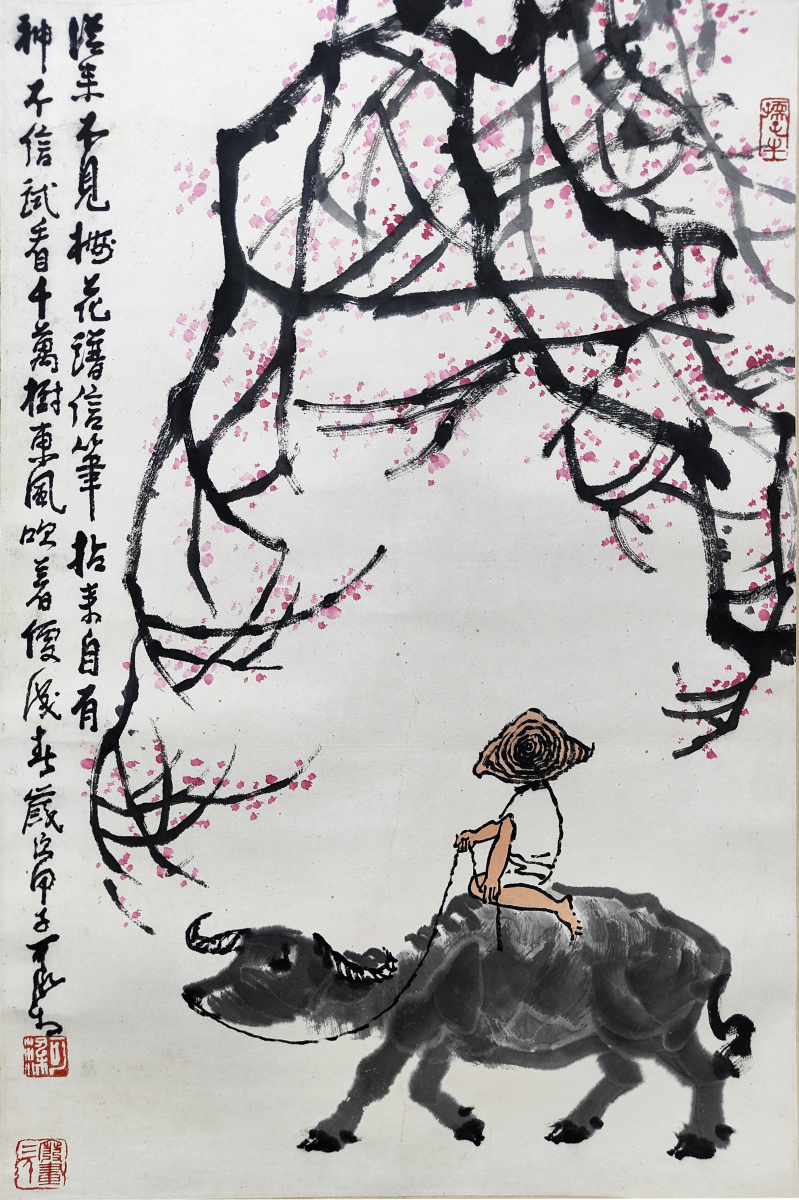 孺牛
從來不見梅花譜信筆拈來自有
神不信試看千萬樹東風吹著便成春歲次甲子可染
可染
廢畫三千